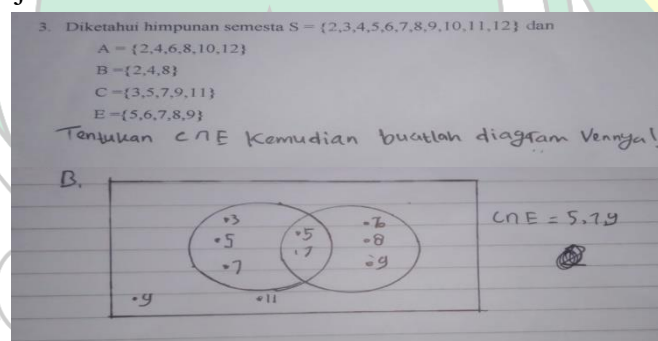 3. Diketahui himpunan semesta S = {2,3,4,5,6,7,8,9,10,11,12} dan
A = {2,4,6,8,10,12}
B = {2,4,8}
C = {3,5,7,9,11}
E = {5,6,7,8,9}
Tentukan C ∩ E Kemudian buatlah diagram Vennya!
B.
•3
•5
•7
•5
•7
•6
•8
•9
C ∩ E = 5,7,9
•9
•11